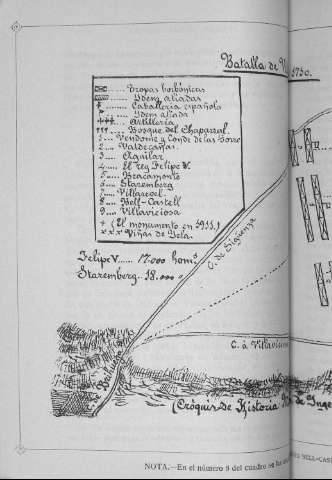 Batalla de Vi
1730.
Tropas borbónicas
Idem aliadas
Caballería española
Idem aliada
Artillería
Bosque del Chaparral.
1... Vendome y Conde de las Torre
2... Valdecañas.
3... Aguilar
4... El rey Felipe V.
5... Bracamonte
6... Staremberg
7... Villaroel.
8... Bell-Castell
9... Villaviciosa
+ (El monumento en 1911.)
××× Viñas de Bela.
Felipe V...... 17.000 homs
Staremberg.. 18.000 "
C. de Sigüenza
C. à Villavicio
de Brihuega
(Cróquis de Historia de Inge
NOTA.—En el número 8 del cuadro
BELL-CAS